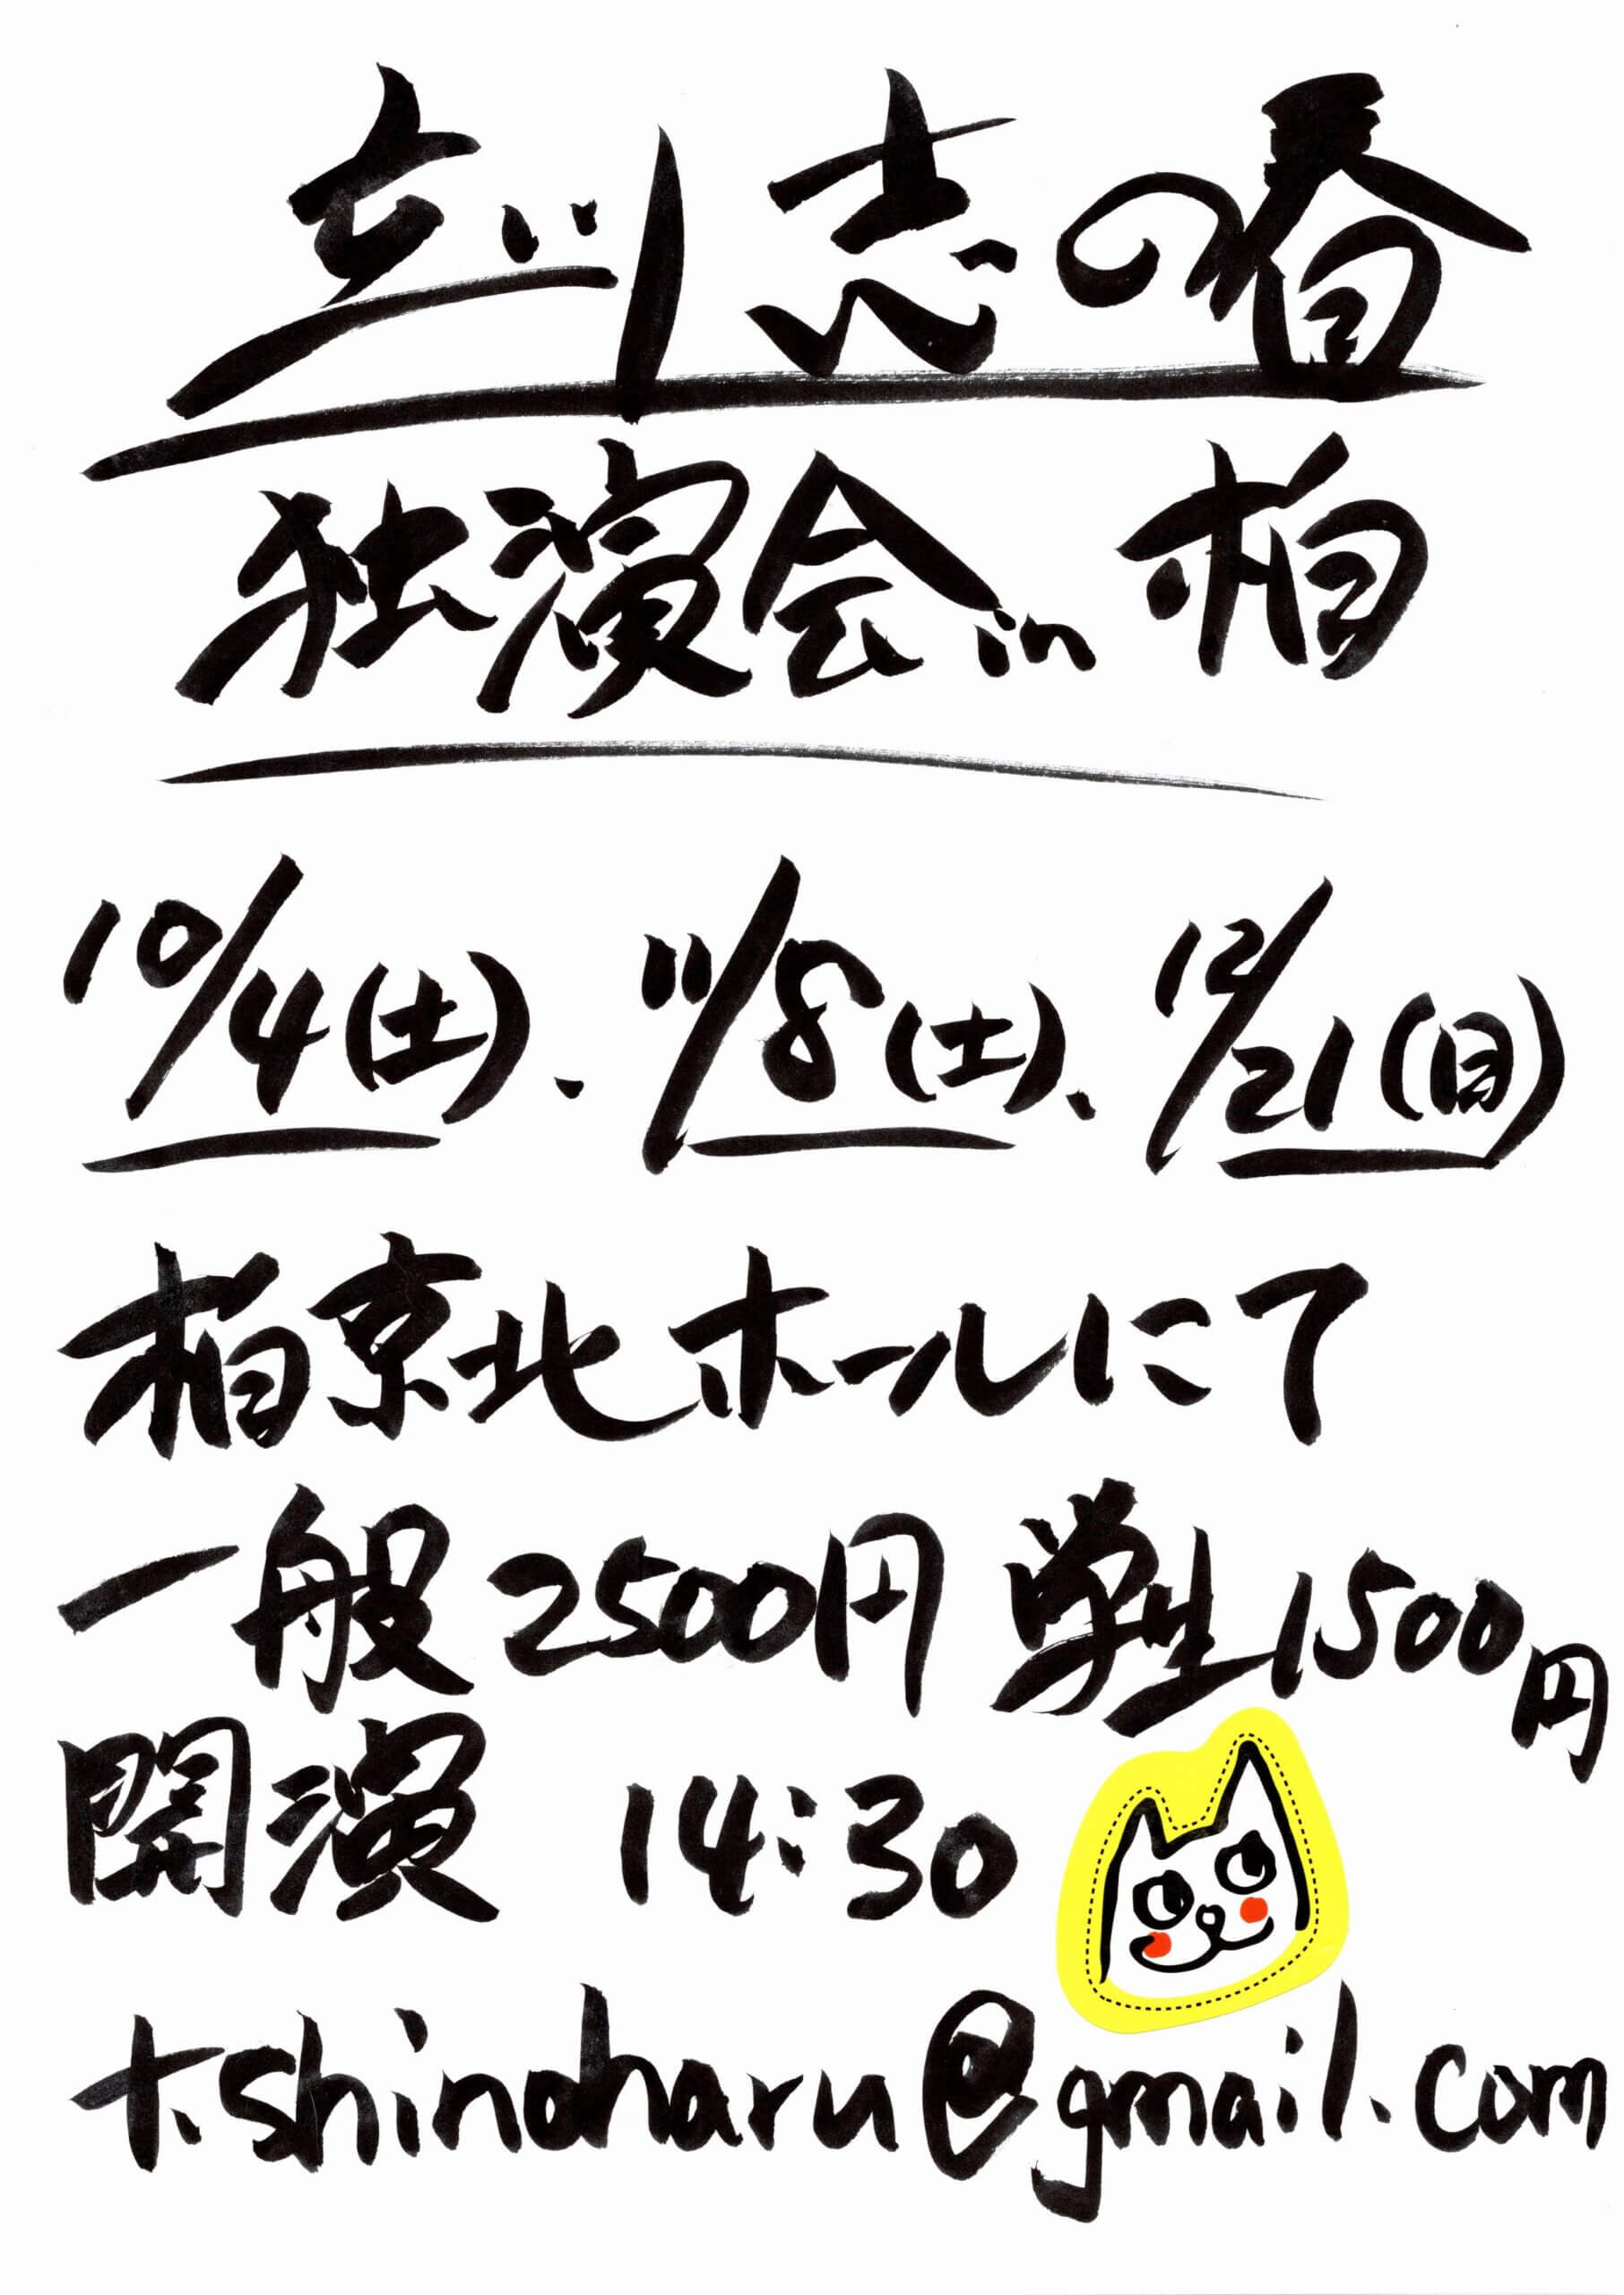 立川志の春
独演会in柏
10/4(土)、11/8(土)、12/21(日)
柏京北ホールにて
一般2500円 学生1500円
開演 14:30
t.shinoharu@gmail.com